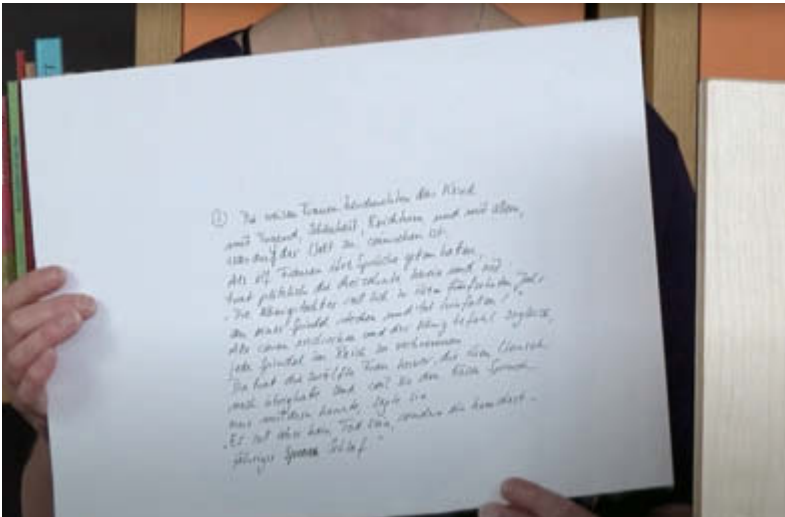 ② Die weisen Frauen beschenkten das Kind
mit Tugend, Schönheit, Reichtum und mit allem,
was auf der Welt zu wünschen ist.
Als elf Frauen ihre Sprüche getan hatten,
trat plötzlich die dreizehnte herein und rief:
"Die Königstochter soll sich in ihrem fünfzehnten Jahr
an einer Spindel stechen und tot hinfallen!"
Alle waren erschrocken und der König befahl sogleich,
jede Spindel im Reich zu verbrennen.
Da trat die zwölfte Frau hervor, die ihren Wunsch
noch übrig hatte und weil sie den bösen Spruch
nur mildern konnte, sagte sie
"Es soll aber kein Tod sein, sondern ein hundert-
jähriger Schlaf."